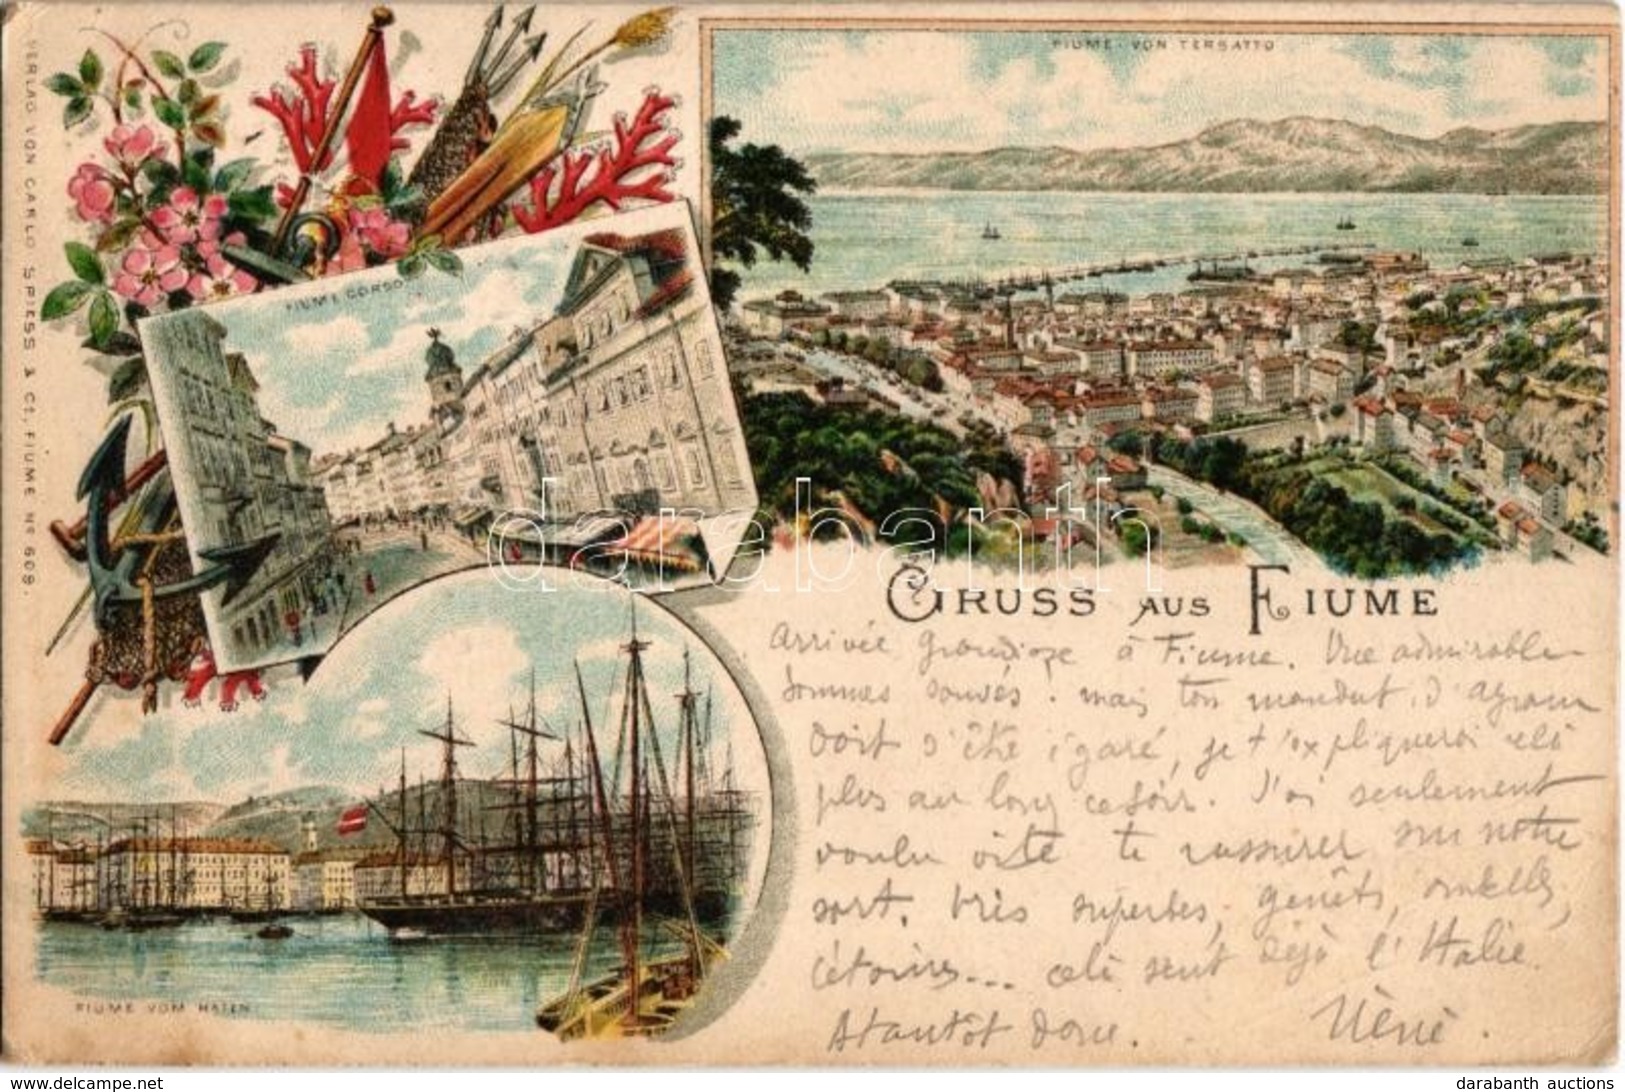 VERLAG VON CARLO SPIESS & Cº, FIUME Nº 608.
FIUME VON TERSATTO
FIUME CORSO
FIUME VOM HAFEN
GRUSS AUS FIUME
Arrivée grandiose à Fiume. Vue admirable
sommes sauvés. mais ton mandat d'Agram
doit s'être égaré, je t'expliquerai cela
plus au long ce soir. J'ai seulement
voulu vite te rassurer sur notre
sort. très superbes, genêts,
cela sent déjà l'Italie.
A tantôt donc.
darabanth
darabanth auctions